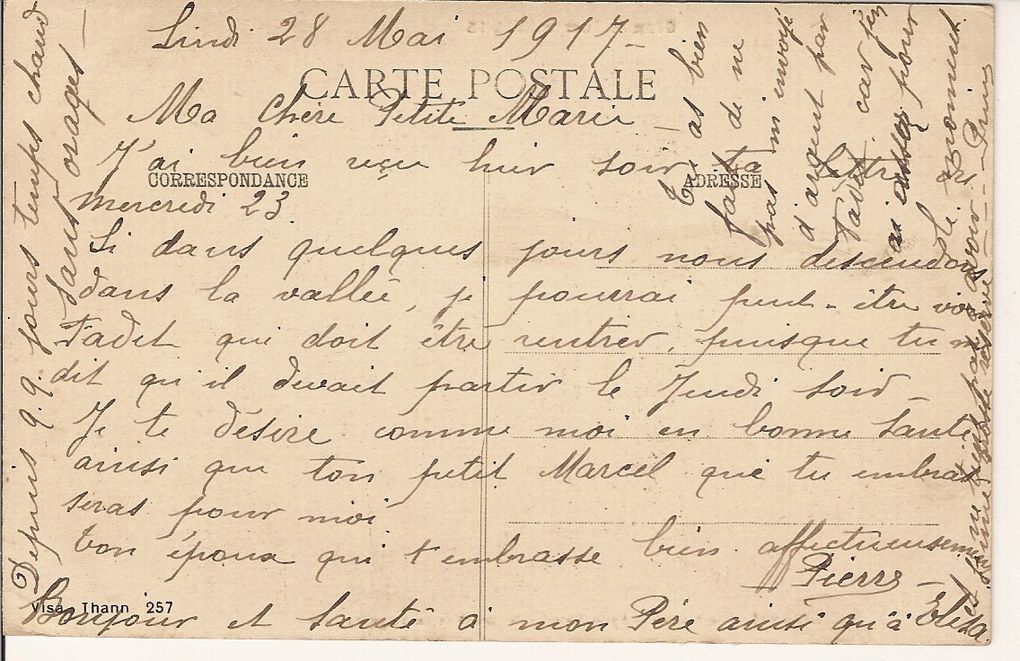 Lundi 28 Mai 1917 -
CARTE POSTALE
Ma Chère Petite Marie -
J'ai bien reçu hier soir ta lettre de
CORRESPONDANCE
ADRESSE
Mercredi 23.
Si dans quelques jours nous descendons
dans la vallée, je pourrai peut-être voir
Tadet qui doit être rentrer, puisque tu me
dit qu'il devait partir le Jeudi soir -
Je te désire comme moi en bonne santé
ainsi que ton petit Marcel que tu embras
seras pour moi.
ton époux qui t'embrasse bien affectueusement
Pierre -
Bonjour et santé à mon Père ainsi qu'à Elisa
Visa Thann 257
Depuis 8.9 jours temps chaud
sans orages -
Tu as bien
fait de ne
pas m'envoyé
d'argent par
Tadet car j'en
ai assez pour
le moment